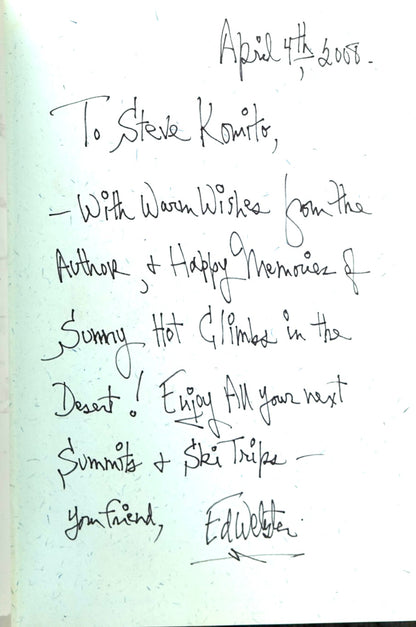 April 4th, 2008.
To Steve Komito,
- With Warm Wishes from the
Author, & Happy Memories of
Sunny Hot Climbs in the
Desert! Enjoy All your next
Summits & Ski Trips -
your friend, Ed Webster.